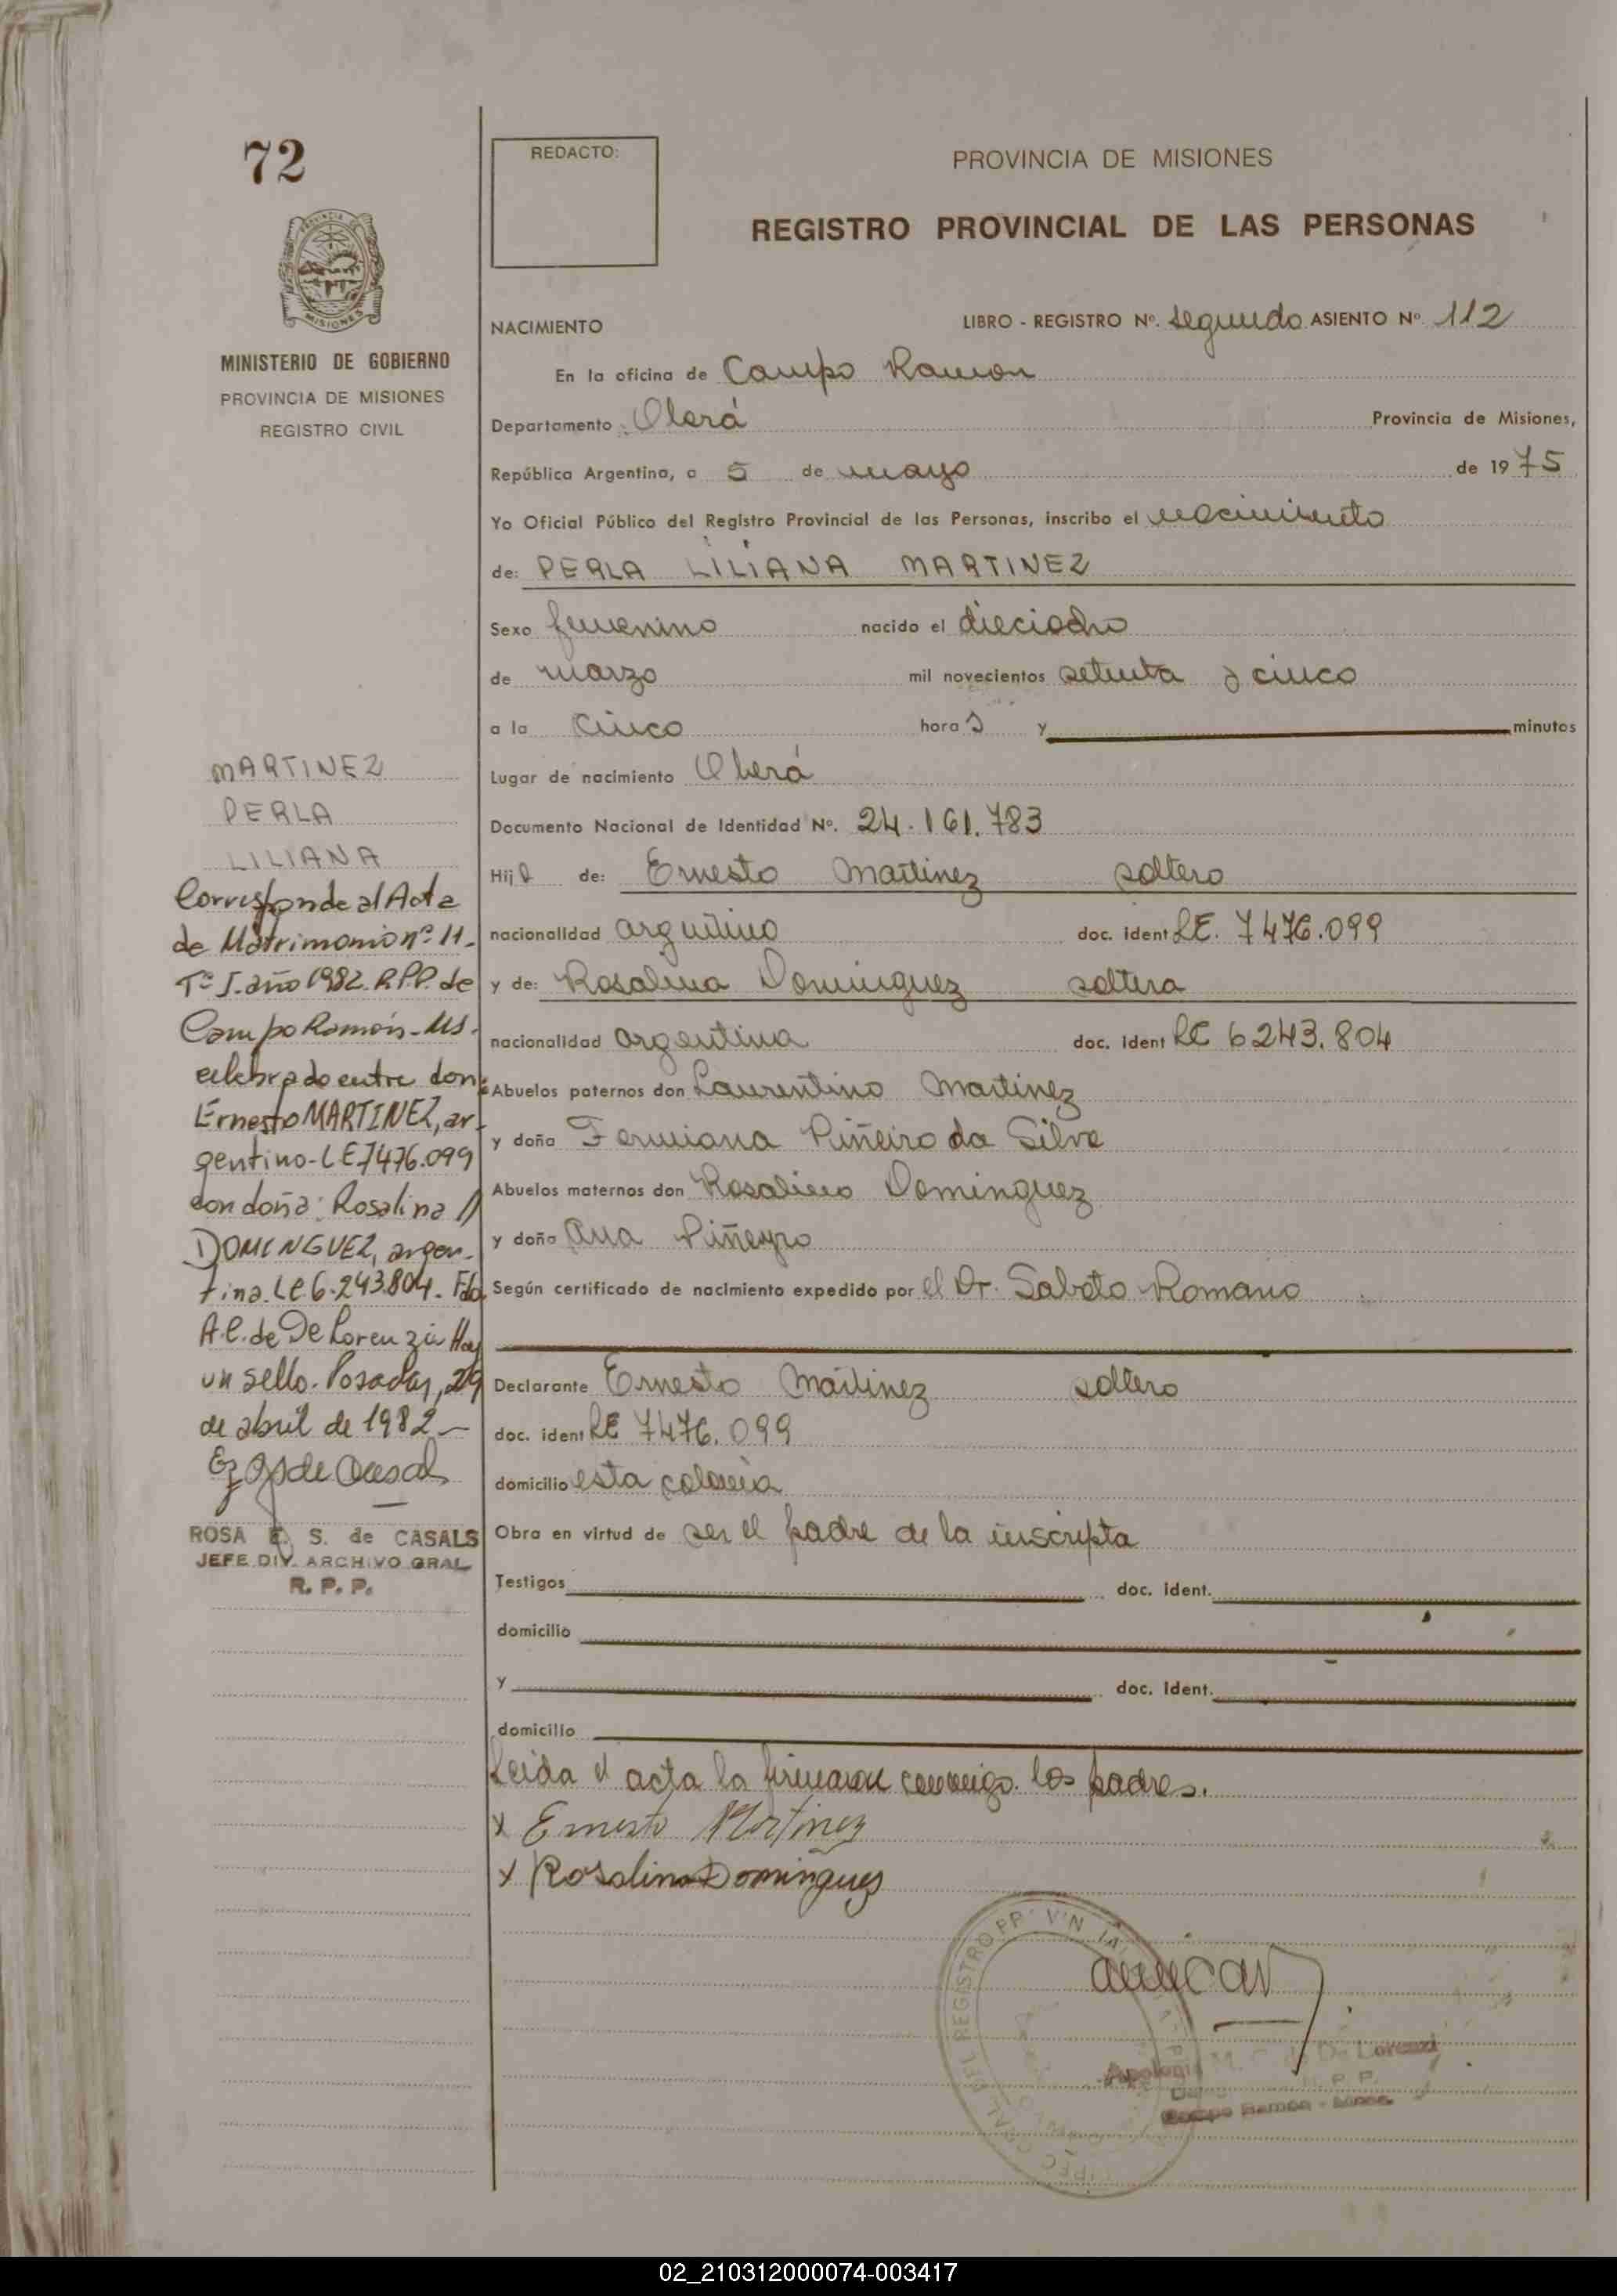 72
PROVINCIA DE
MISIONES
MINISTERIO DE GOBIERNO
PROVINCIA DE MISIONES
REGISTRO CIVIL
MARTINEZ
PERLA
LILIANA
Corresponde al Acta
de Matrimonio nº 11.
Tº I. año 1982. R.P.P. de
Campo Ramón-Ms.
celebrado entre don:
Ernesto MARTINEZ, ar-
gentino-LE7476.099
con doña: Rosalina //
DOMINGUEZ, argen-
tina. LC.6.243.804. Fdo.
A.C. de De Lorenzi Hay
un sello. Posadas, 29
de abril de 1982-
ROSA E. S. de CASALS
JEFE DIV. ARCHIVO GRAL
R. P. P.
REDACTO:
PROVINCIA DE MISIONES
REGISTRO PROVINCIAL DE LAS PERSONAS
NACIMIENTO LIBRO - REGISTRO Nº. segundo ASIENTO Nº 112
En la oficina de Campo Ramon
Departamento Oberá Provincia de Misiones,
República Argentina, a 5 de mayo de 1975
Yo Oficial Público del Registro Provincial de las Personas, inscribo el nacimiento
de: PERLA LILIANA MARTINEZ
Sexo femenino nacido el dieciocho
de marzo mil novecientos setenta y cinco
a la cinco horas y minutos
Lugar de nacimiento Oberá
Documento Nacional de Identidad Nº. 24.161.783
Hija de: Ernesto Martinez soltero
nacionalidad argentino doc. ident LE. 7476.099
y de: Rosalina Dominguez soltera
nacionalidad argentina doc. ident LC 6243.804
Abuelos paternos don Laurentino Martinez
y doña Fermiana Piñeiro da Silva
Abuelos maternos don Rosalino Dominguez
y doña Ana Piñeyro
Según certificado de nacimiento expedido por el Dr. Sabato Romano
Declarante Ernesto Martinez soltero
doc. ident LE 7476.099
domicilio esta colonia
Obra en virtud de ser el padre de la inscripta
Testigos doc. ident.
domicilio
y doc. ident.
domicilio
Leida el acta la firman conmigo los padres.
x Ernesto Martinez
x Rosalina Domingues
Lorenzi
Campo Ramon - Mnes.
02_210312000074-003417